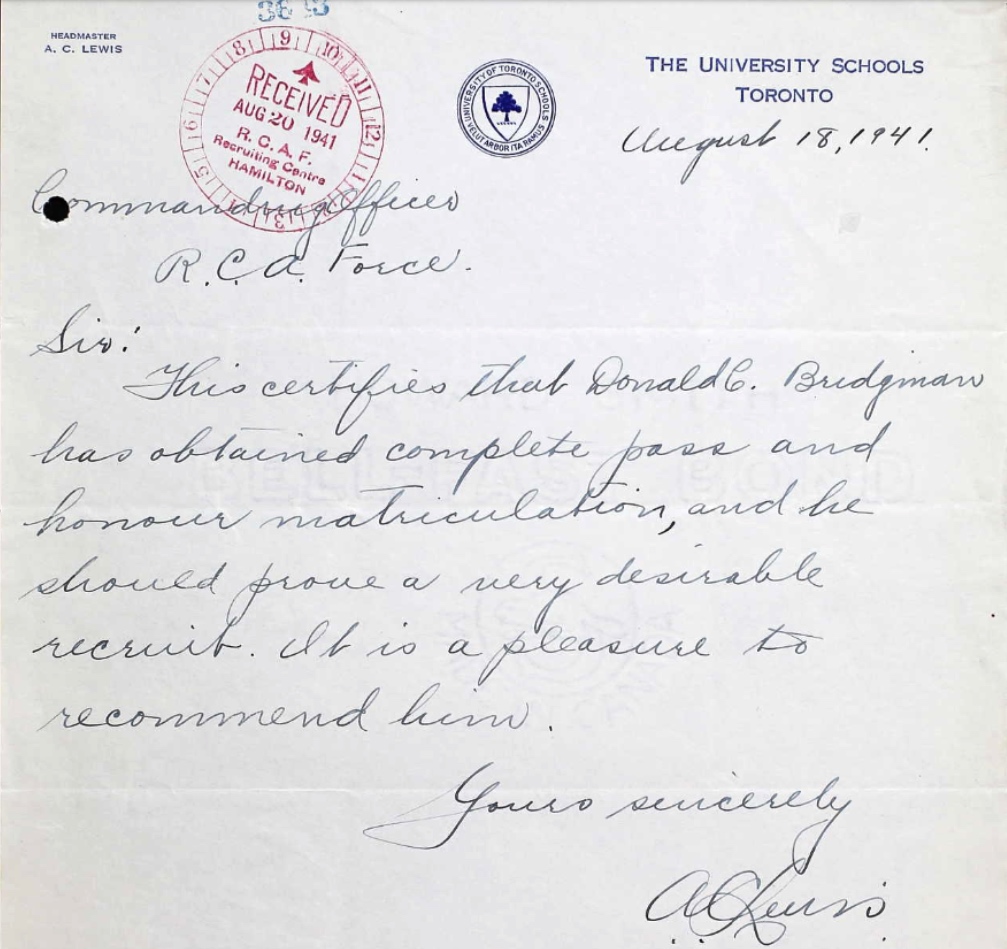 HEADMASTER
A. C. LEWIS
THE UNIVERSITY SCHOOLS
TORONTO
UNIVERSITY OF TORONTO SCHOOLS
VELUT ARBOR ITA RAMUS
8 9 10 11 12 1 2 3 4 5 6 7
RECEIVED
AUG 20 1941
R. C. A. F.
Recruiting Centre
HAMILTON
August 18, 1941.
Commanding Officer
R. C. A. Force.
Sir:
This certifies that Donald C. Bridgman
has obtained complete pass and
honour matriculation, and he
should prove a very desirable
recruit. It is a pleasure to
recommend him.
Yours sincerely
A C Lewis